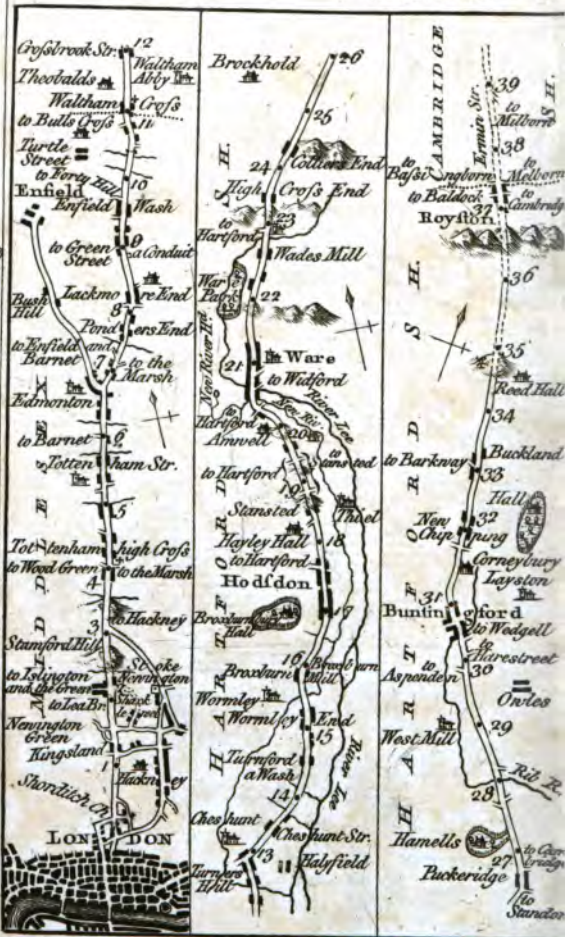 Crossbrook Str.
12
Waltham
Abby
Theobalds
Waltham Cross
to Bulls Cross
11
Turtle
Street
to Forty Hill
10
Enfield
Enfield Wash
9
to Green
Street
a Conduit
Bush
Hill
Lackmore End
8
Ponders End
to Enfield and
Barnet
7
to the
Marsh
Edmonton
to Barnet
6
Tottenham Str.
5
Tottenham high Cross
to Wood Green
to the Marsh
4
to Hackney
3
Stamford Hill
Stoke
Newington
to Islington
and the Green
to Lea Br.
Newington
Green
Kingsland
1
Hackney
Shorditch Ch.
LONDON
MIDDLESEX
26
Brockhold
25
24
Colliers End
High Cross End
23
to
Hartford
Wades Mill
Ware
Park
22
New River Hd.
21
Ware
to Widford
River Lee
to
Hartford
Amwell
20
to
Stansted
to Hartford
19
Stansted
Thiel
Hayley Hall
18
to Hartford
Hodsdon
17
Broxbournbury
Hall
16
Broxburn
Broxburn
Mill
Wormley
Wormley End
15
Turnford
a Wash
River Lee
14
Cheshunt
Cheshunt Str.
13
Halyfield
Turners
Hill
HARTFORDSH.
39
to
Milborn
Ermin Str.
38
to
Melborn
to
Bassingborn
to Baldock
to
Cambridg
37
Royston
36
35
Reed Hall
34
Buckland
to Barkway
33
Hall
32
New
Chipping
Corneybury
Layston
31
Buntingford
to Wedgell
to
Harestreet
to
Aspenden
30
Owles
29
West Mill
Rib R.
28
Hamells
27
Puckeridge
to Cam
bridge
to
Standon
HARTFORDSH.
CAMBRIDGE
SH.